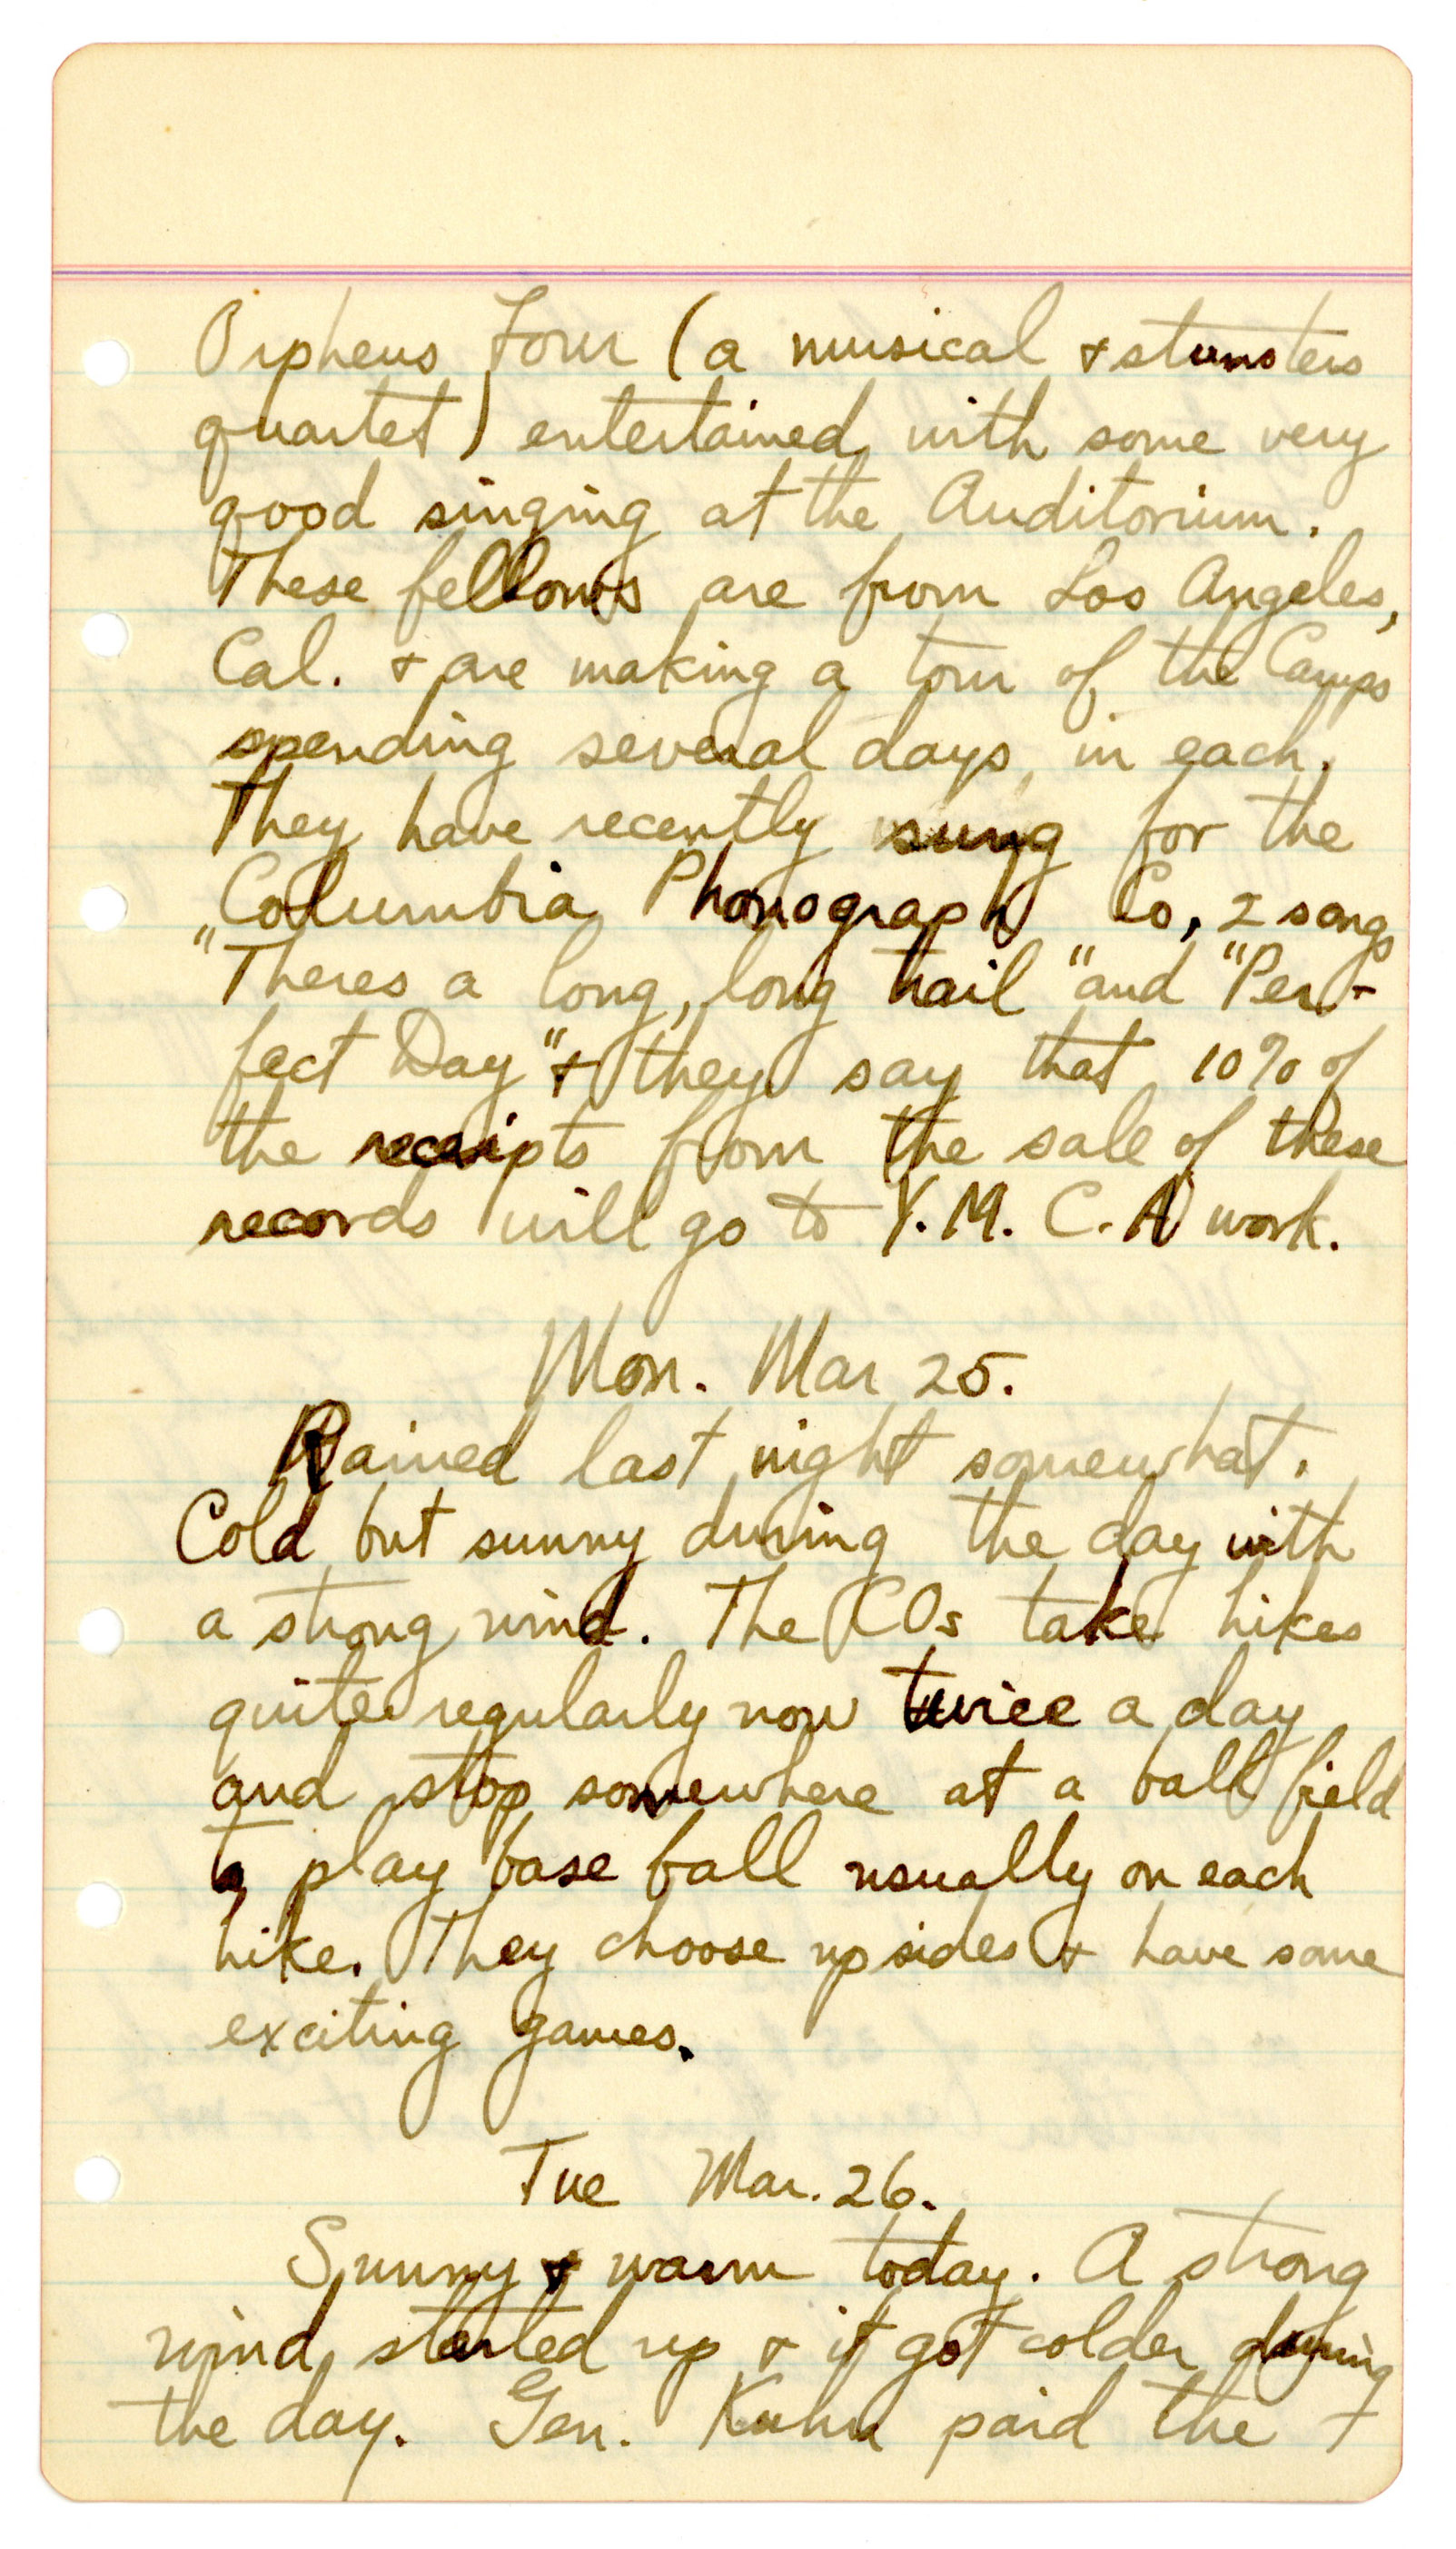 Orpheus Four (a musical + stunsters
quartet) entertained with some very
good singing at the Auditorium.
These fellows are from Los Angeles,
Cal. + are making a tour of the Camps
spending several days in each.
They have recently sung for the
Columbia Phonograph Co, 2 songs
"Theres a long, long trail" and "Per-
fect Day" + they say that 10% of
the receipts from the sale of these
records will go to Y.M.C.A work.
Mon. Mar 25.
Rained last night somewhat.
Cold but sunny during the day with
a strong wind. The COs take hikes
quite regularly now twice a day
and stop somewhere at a ball field
to play base ball usually on each
hike. They choose up sides + have some
exciting games.
Tue Mar. 26.
Sunny + warm today. A strong
wind started up + it got colder during
the day. Gen. Kuhn paid the +